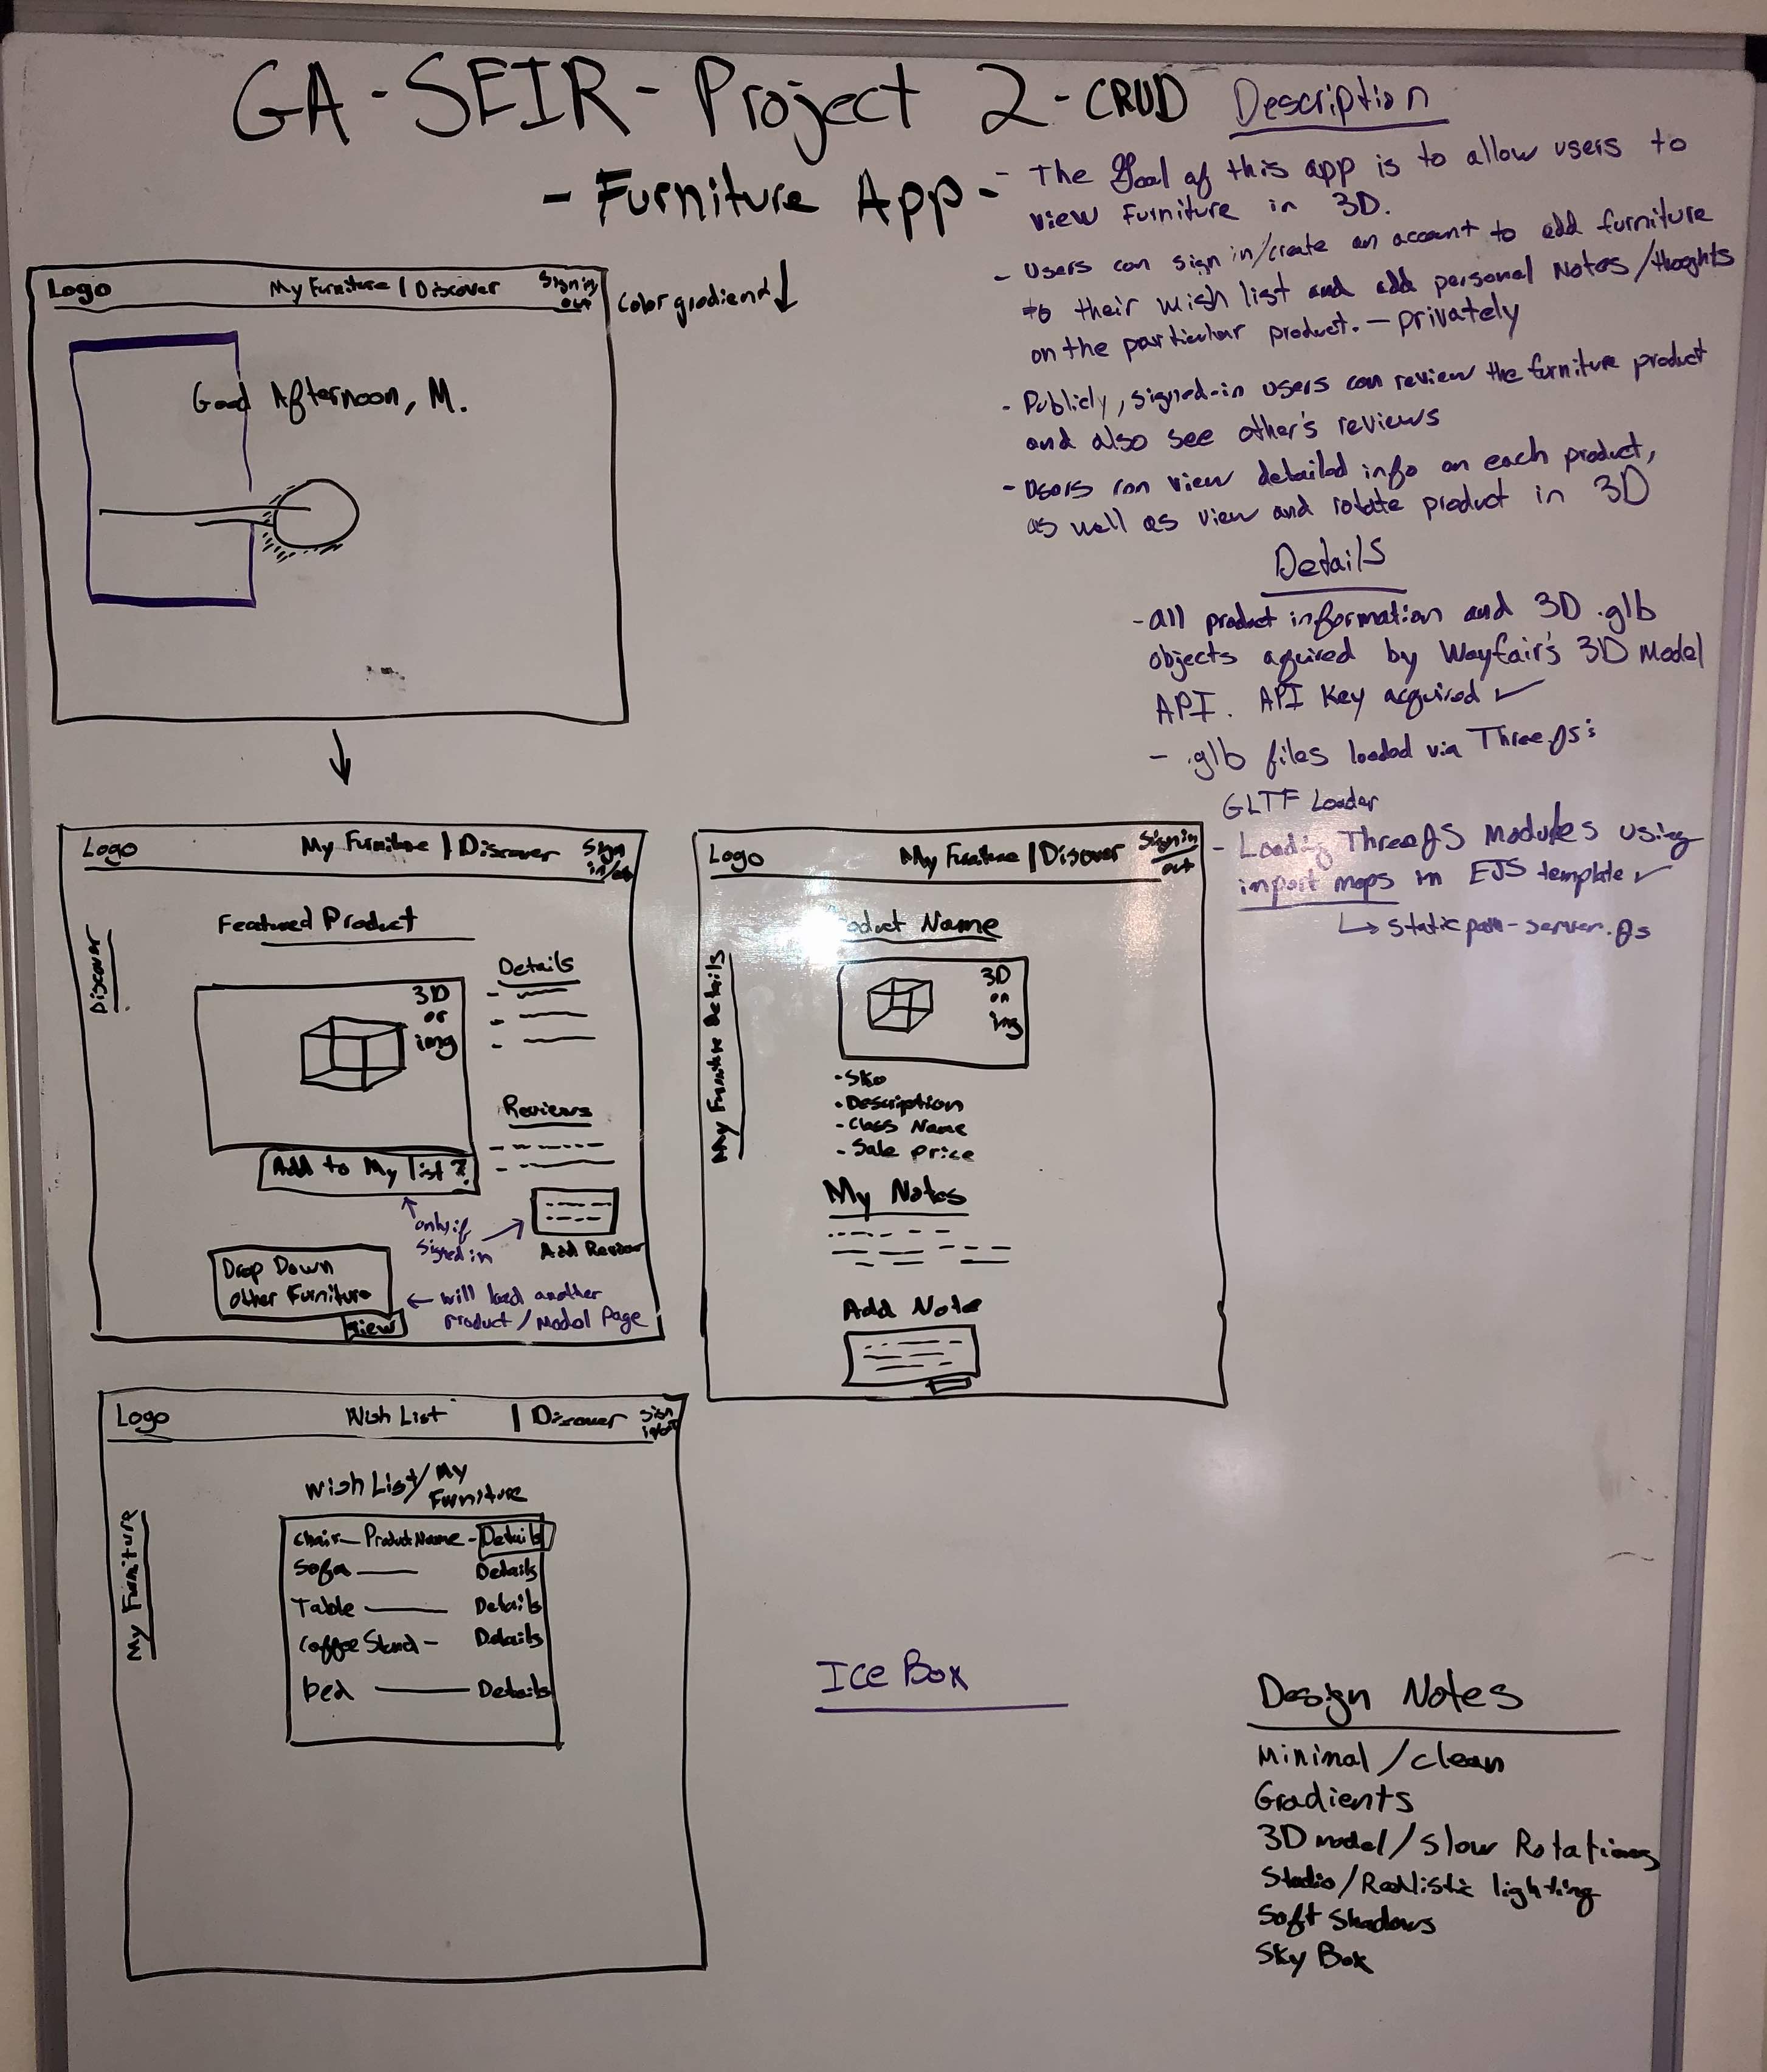 GA - SEIR - Project 2 - CRUD
- Furniture App -
Description
- The Goal of this app is to allow users to
view Furniture in 3D.
- Users can sign in/create an account to add furniture
to their wish list and add personal Notes/thoughts
on the particular product. - privately
- Publicly, signed-in users can review the furniture product
and also see other's reviews
- Users can view detailed info on each product,
as well as view and rotate product in 3D
Details
- all product information and 3D .glb
objects aquired by Wayfair's 3D Model
API. API Key acquired ✓
- .glb files loaded via ThreeJS:
GLTF Loader
- Loading ThreeJS modules using
import maps in EJS template ✓
↳ static path - server.js
Logo My Furniture | Discover Sign in
out
Color gradient ↓
Good Afternoon, M.
Logo My Furniture | Discover Sign
in/out
Discover
Featured Product
3D
or
img
Details
Reviews
Add to My list?
only if
signed in
Add Review
Drop Down
other Furniture
View
← will load another
product / Model Page
Logo My Furniture | Discover Sign in
out
My Furniture Details
Product Name
3D
or
img
- Sku
- Description
- Class Name
- Sale price
My Notes
Add Note
Logo Wish List | Discover sign
in/out
My Furniture
Wish List/My
Furniture
Chair - Product Name - Details
Sofa Details
Table Details
Coffee Stand - Details
bed Details
Ice Box
Design Notes
Minimal / clean
Gradients
3D model / slow Rotations
Studio / Realistic lighting
Soft Shadows
Sky Box